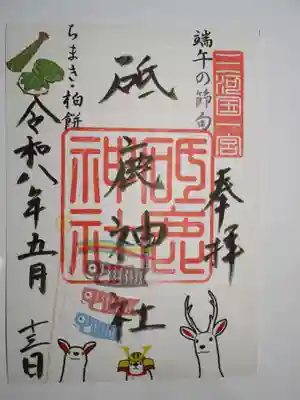 三河国一宮
奉拝
端午の節句
砥鹿神社
砥鹿
神社
ちまき・柏餅
令和八年五月十三日